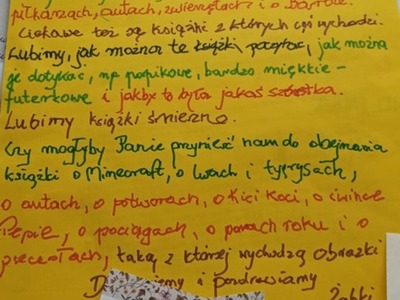 piłkarzach, autach, zwierzętach i o Barbie.
Ciekawe też są książki z których coś wychodzi.
Lubimy, jak można te książki poczytać, jak można
je dotykać, np papikowe, bardzo miękkie -
futerkowe i jakby to była jakaś szóstka.
Lubimy książki śmieszne.
Czy mogłyby Panie przynieść nam do obejrzenia
książki o Minecraft, o lwach i tygrysach,
o autach, o potworach, o Kici Koci, o śwince
Pepie, o pociągach, o porach roku i o
pszczołach, taką z której wychodzą obrazki
i pozdrawiamy